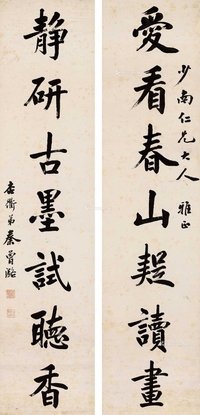 少南仁兄大人　雅正
愛看春山疑讀畫
静研古墨試聽香
杏衢弟秦曾潞